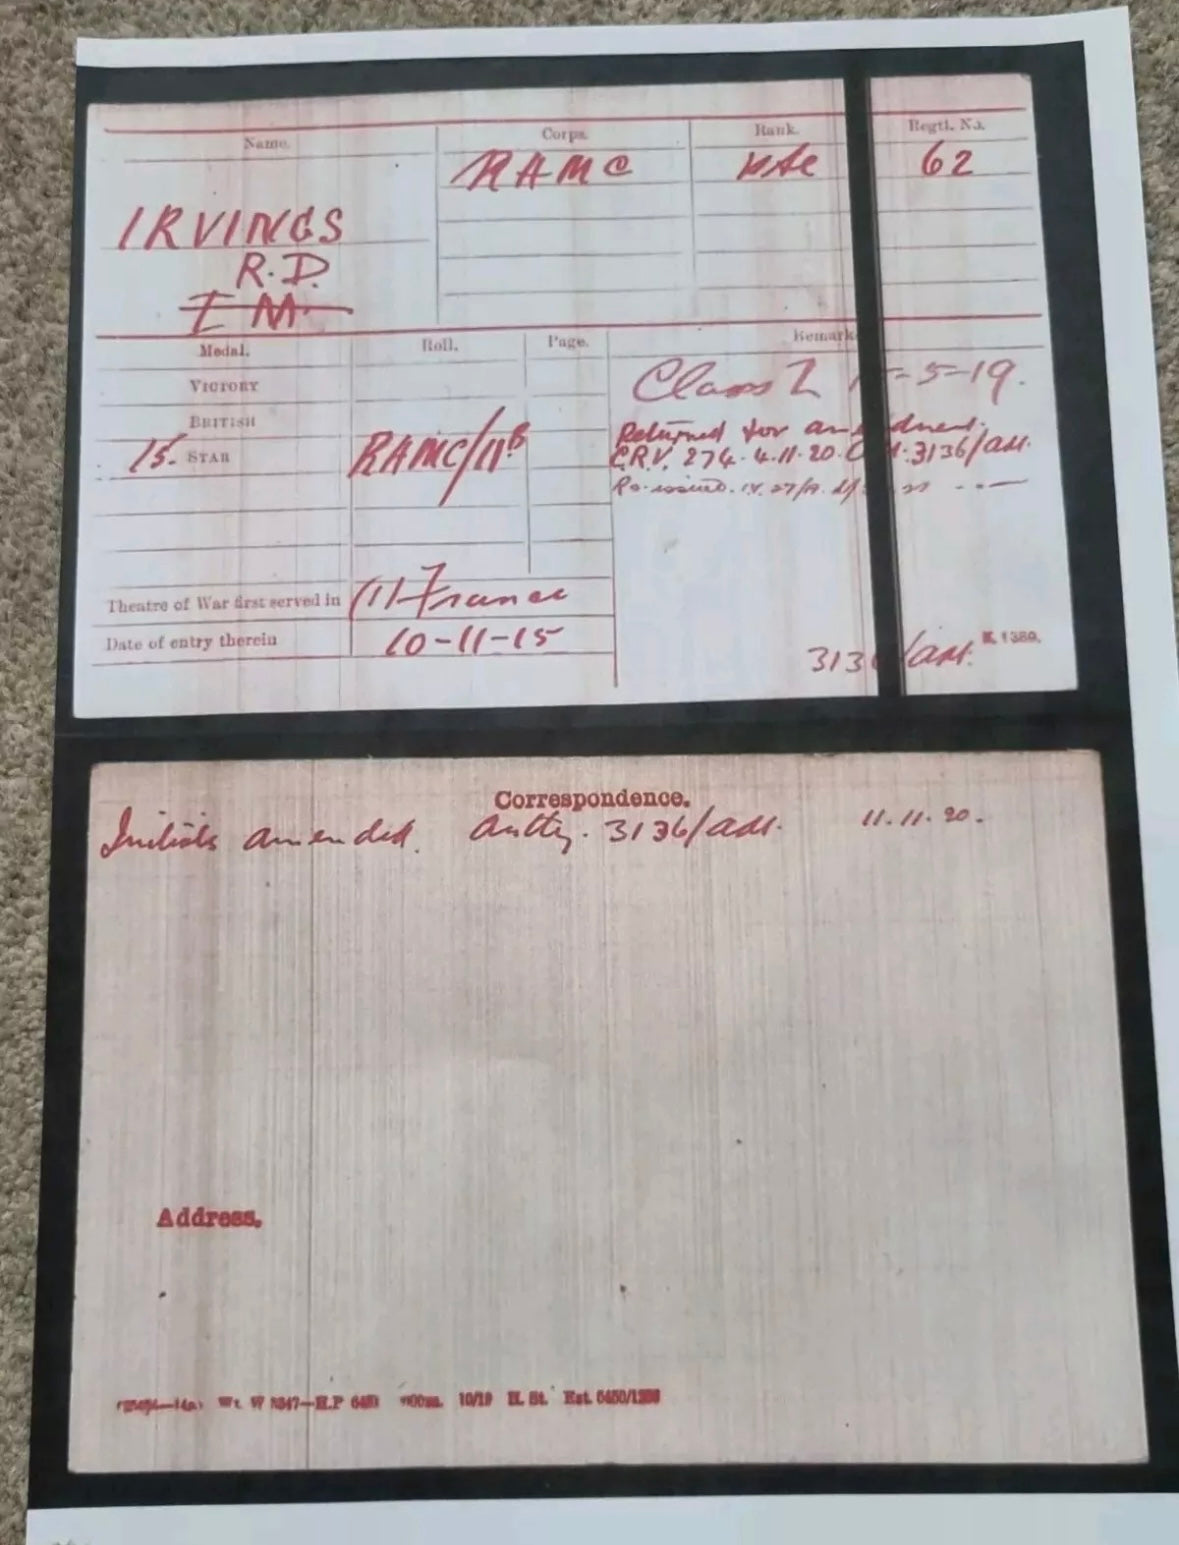 Name. Corps. Rank. Regtl. No.
RAMC Pte 62
IRVINGS
R.D.
I M.
Medal. Roll. Page. Remark
VICTORY
BRITISH
15. STAR RAMC/11B
Class Z -5-19.
Returned for am dment.
C.R.V. 274. 4.11.20. 3136/adt.
Re-issued.
Theatre of War first served in (1) France
Date of entry therein 10-11-15
K. 1380.
313 /adt.
Correspondence.
Initials amended. Authy. 3136/adt. 11.11.20.
Address.
Wt. W 10/19 H. St. Est.